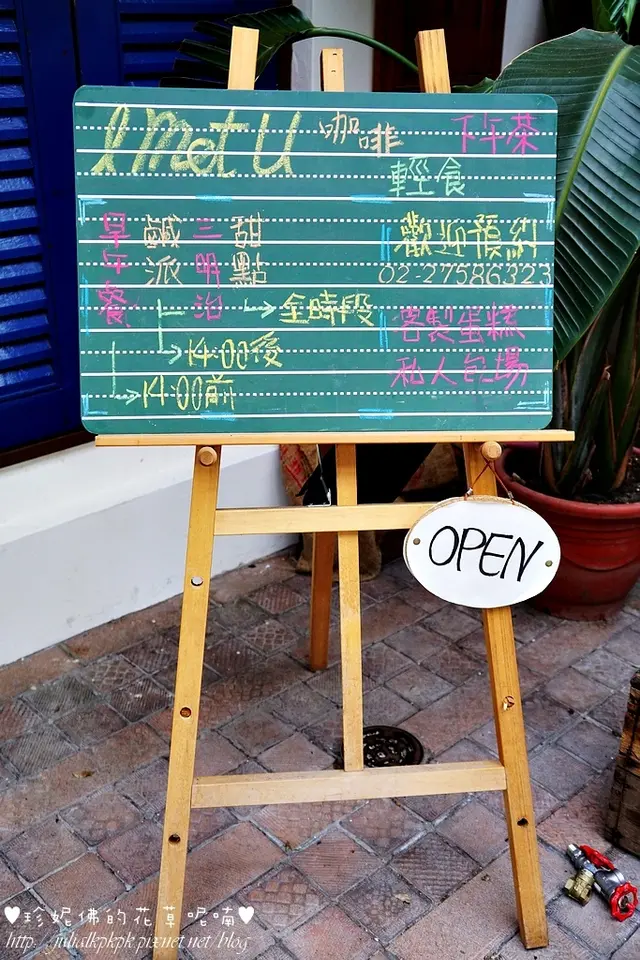 l Met U 咖啡 下午茶
輕食
早午餐 鹹派 三明治 甜點
全時段
14:00後
14:00前
歡迎預約
02-27586323
客製蛋糕
私人包場
OPEN
♥珍妮佛的花草呢喃♥